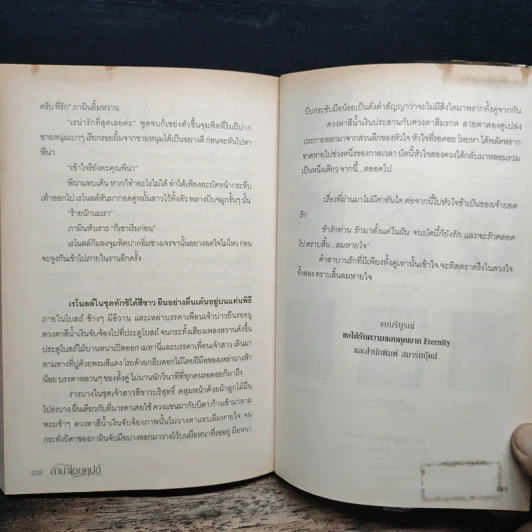 ครับ ที่รัก" ภามินยิ้มหวาน
"เรน่ารักที่สุดเลยค่ะ" พูดจบก็เขย่งตัวขึ้นจุมพิตที่ริมฝีปาก
ชายหนุ่มเบาๆ เรียกรอยยิ้มจากชายหนุ่มได้เป็นอย่างดี ก่อนจะหันไปหา
พีน่า
"เข้าใจรึยังคะคุณพีน่า"
พีนาแทบเต้น หากก็ทำอะไรไม่ได้ ทำได้เพียงสะบัดหน้ากระทืบ
เท้าออกไป เรโนลด์หันมากอดคู่หมั้นสาวไว้ทั้งตัว พลางบีบจมูกรั้นๆ นั้น
"ร้ายนักนะเรา"
ภามินหัวเราะ "ก็เขาเริ่มก่อน"
เรโนลด์ก้มลงจุมพิตปากอิ่มช่างเจรจานั้นอย่างอดใจไม่ไหว ก่อน
จะจูงกันเข้าไปภายในงานอีกครั้ง
เรโนลด์ในชุดทักซิโด้สีขาว ยืนอย่างตื่นเต้นอยู่บนแท่นพิธี
ภายในโบสถ์ ข้างๆ มีอีวาน และเหล่าบรรดาเพื่อนเจ้าบ่าวยืนรออยู่
ดวงตาสีน้ำเงินจับจ้องไปที่ประตูโบสถ์ จนกระทั่งเสียงเพลงหวานดังขึ้น
ประตูโบสถ์ไม้บานหนาเปิดออก เมทานีและบรรดาเพื่อนเจ้าสาว เดินมา
ตามทางที่ปูด้วยพรมสีแดง โรยด้วยกลีบดอกไม้โดยฝีมือของเหล่านางฟ้า
น้อยๆ บรรดาหลานๆ ของทั้งคู่ ไม่นานนักวินาทีที่ทุกคนรอคอยก็มาถึง
ร่างบางในชุดเจ้าสาวสีขาวบริสุทธิ์ คลุมหน้าด้วยผ้าลูกไม้ผืน
โปร่งบาง ผืนเดียวกับที่มารดาเคยใช้ ควงแขนมากับบิดา ก้าวเข้ามาตาม
พรมช้าๆ ดวงตาสีน้ำเงินจับจ้องภาพนั้นไม่วางตาแทบลืมหายใจ จน
กระทั่งบิดาของภามินจับมือบางออกมาวางไว้บนมือหนาที่รออยู่ มือหนา
238 ลำนำโอบคุปต์
บีบกระชับมือน้อยเป็นดั่งคำสัญญาว่าจะไม่มีสิ่งใดมาพรากทั้งคู่จากกัน
ดวงตาสีน้ำเงินประสานกับดวงตาสีมรกต สายตาสองคู่เปล่ง
ประกายออกมาจากส่วนลึกของหัวใจ หัวใจที่รอคอย โหยหา ได้พลัดพราก
ขาดหายไปช่วงหนึ่งของกาลเวลา บัดนี้หัวใจสองดวงได้กลับมาหลอมรวม
เป็นหนึ่งเดียว จากนี้...ตลอดไป
เรื่องที่ผ่านมาไม่มีค่าอันใด ต่อจากนี้ไปหัวใจข้าเป็นของเจ้ายอด
รัก
ข้ารักท่าน รักมาตั้งแต่ในฝัน จนบัดนี้ก็ยังรัก และจะรักตลอด
ไป ตราบสิ้น...ลมหายใจ
คำสาบานรักที่มีเพียงทั้งคู่เท่านั้นเข้าใจ จะติดตราตรึงในดวงใจ
ทั้งสอง ตราบสิ้นลมหายใจ
จบบริบูรณ์
ขอได้รับความขอบคุณจาก Eternity
และสำนักพิมพ์ สมาร์ทบุ๊คส์